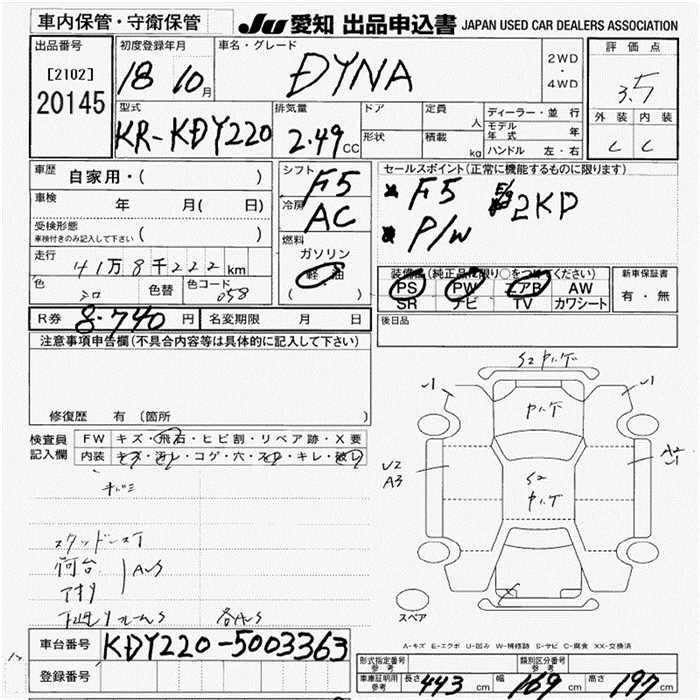 車内保管・守衛保管
JU 愛知 出品申込書 JAPAN USED CAR DEALERS ASSOCIATION
出品番号
[2102]
20145
初度登録年月
18 10月
車名・グレード
DYNA
2WD
・
4WD
評価点
3.5
外装 内装
C C
型式
KR-KDY220
排気量
2.49cc
ドア
形状
定員 人
積載 kg
ディーラー・並行
モデル年式 年
ハンドル 左・右
車歴 自家用・( )
車検 年 月( 日)
受検形態
車検付きのみ記入して下さい ( )
走行 41万8千222km
色 シロ 色替 色コード 058
シフト F5
冷房 AC
燃料
ガソリン
軽油
( )
セールスポイント(正常に機能するものに限ります)
F5 2KD
P/W
装備品(純正品に限り○をつけてください)
PS PW エアB AW
SR ナビ TV カワシート
新車保証書
有・無
R券 8.740円 名変期限 月 日
後日品
注意事項申告欄(不具合内容等は具体的に記入して下さい)
修復歴 有(箇所 )
検査員記入欄
FW キズ・飛石・ヒビ割・リペア跡・X要
内装 キズ・汚レ・コゲ・穴・スレ・キレ・破レ
スタッドレスT
荷台
アオリ
AUS
各AUS
S2
U2
A3
A2
S2
スペア
A-キズ E-エクボ U-凹み W-補修跡 S-サビ C-腐食 XX-交換済
車台番号 KDY220-5003363
登録番号
形式指定番号
参考
類別区分番号
参考
車庫証明用
参考
長さ 443cm 幅 169cm 高さ 197cm